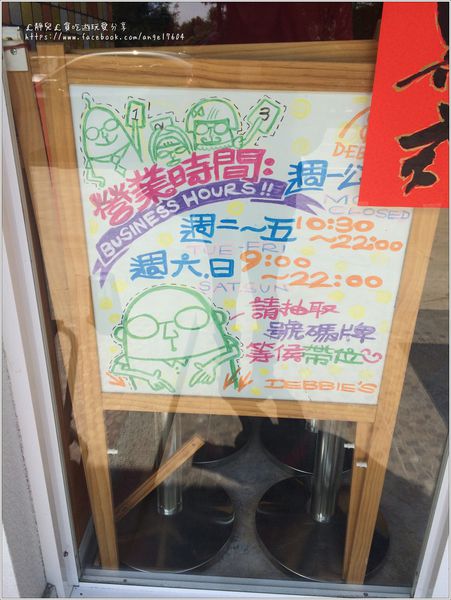 ღ靜兒ღ貪吃遊玩愛分享
https://www.facebook.com/ange17604
1
2
3
營業時間:
BUSINESS HOURS!!
週一公
CLOSED
週二~五 10:30
TUE-FRI ~22:00
週六.日 9:00
SATSUN ~22:00
請抽取
號碼牌
等候帶位
DEBBIE'S